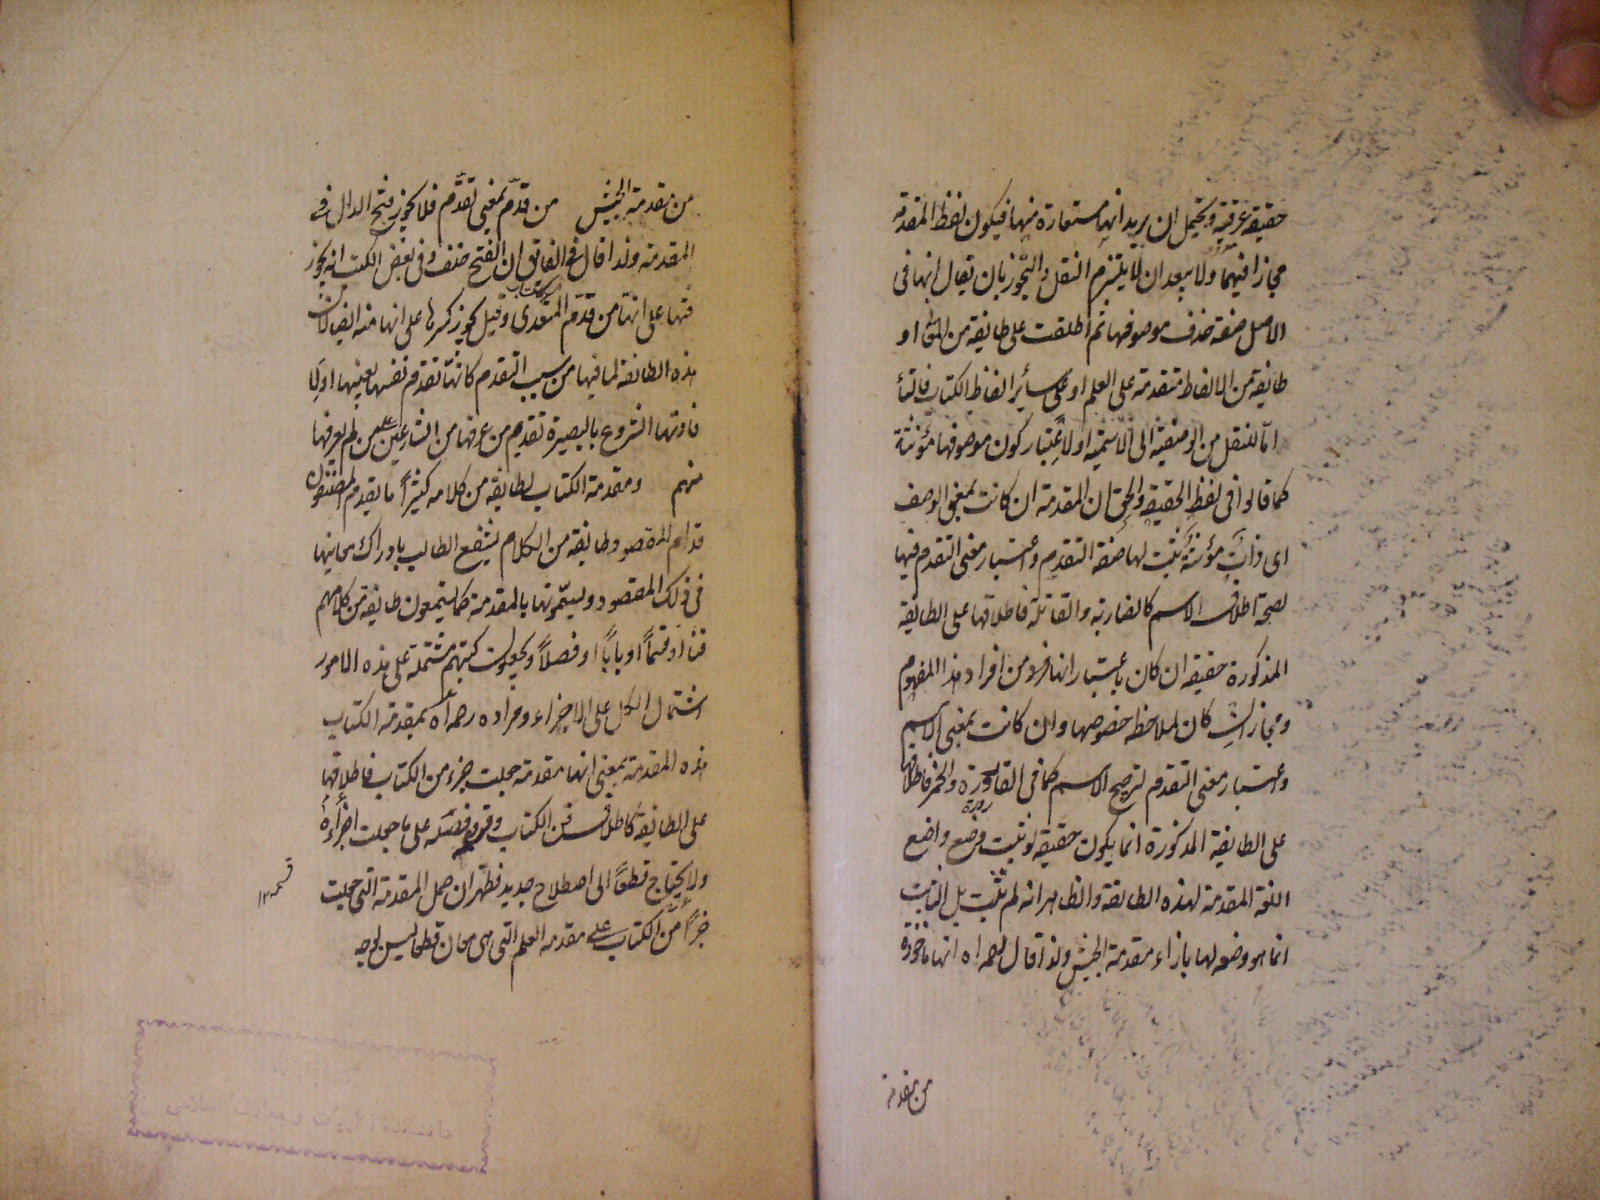 حقيقة عرفية ويحتمل ان يريد انها مستعارة منها فيكون لفظ المقدمة
مجازا فيهما ولا يبعد ان لا يلتزم النقل والتجوز بان يقال انها في
الاصل صفة حذف موصوفها ثم اطلقت على طايفة من المعاني او
طايفة من الالفاظ متقدمة على العلم او على سائر الفاظ الكتاب فالتاء
اما للنقل من الوصفية الى الاسمية او لاعتبار كون موصوفها مؤنثة
كما قالوا في لفظ الحقيقة والحق ان المقدمة ان كانت بمعنى الوصف
اى ذات مؤنثة يثبت لها صفة التقدم واعتبار معنى التقدم فيها
لصحة اطلاق الاسم كالضاربة والقاتلة فاطلاقها على الطايفة
المذكورة حقيقة ان كان باعتبار انها فرد من افراد هذا المفهوم
ومجاز ان كان لملاحظة خصوصها وان كانت بمعنى الاسم
واعتبار معنى التقدم لترجيح الاسم كما في القارورة والخمر فاطلاقها
على الطايفة المذكورة انما يكون حقيقة لو ثبت وضع واضع
اللغة المقدمة لهذه الطايفة والظاهر انه لم يثبت بل الثابت
انما هو وضعه لها بازاء مقدمة الجيش ولذا قال رحمه اه انها ماخوذة
من مقدمة
من مقدمة الجيش من قدم بمعنى تقدم فلا يجوز فتح الدال في
المقدمة ولذا قال في الفائق ان الفتح خلف وفي بعض الكتب انه يجوز
فتحها على انها من قدم المتعدى وقيل يجوز كسرها على انها منه ايضا لان
هذه الطائفة لما فيها من سبب التقدم كانها تقدم نفسها بعينها او
فادتها الشروع بالبصيرة تقديم من عرفها من الشارعين على من لم يعرفها
منهم ومقدمة الكتاب لطايفة من كلامه كثيرا ما يقدم المصنفون
قدام المقصود طايفة من الكلام ينتفع الطالب بادراك معانيها
في ذلك المقصود ويسمونها بالمقدمة كما يسمون طايفة من كلامهم
فنا او قسما او بابا او فصلا ويجعلون كتبهم مشتملة على هذه الامور
اشتمال الكل على الاجزاء ومراده رحمه اه بمقدمة الكتاب
هذه المقدمة بمعنى انها مقدمة جعلت جزء من الكتاب فاطلاقها
على الطايفة كاطلاق فن الكتاب وقسمه على ما جعلت اجزاءه
ولا يحتاج قطعا الى اصطلاح جديد فظهر ان حمل المقدمة التى جعلت
جزءا من الكتاب على مقدمة العلم التى هى معان قطعا ليس لوجه